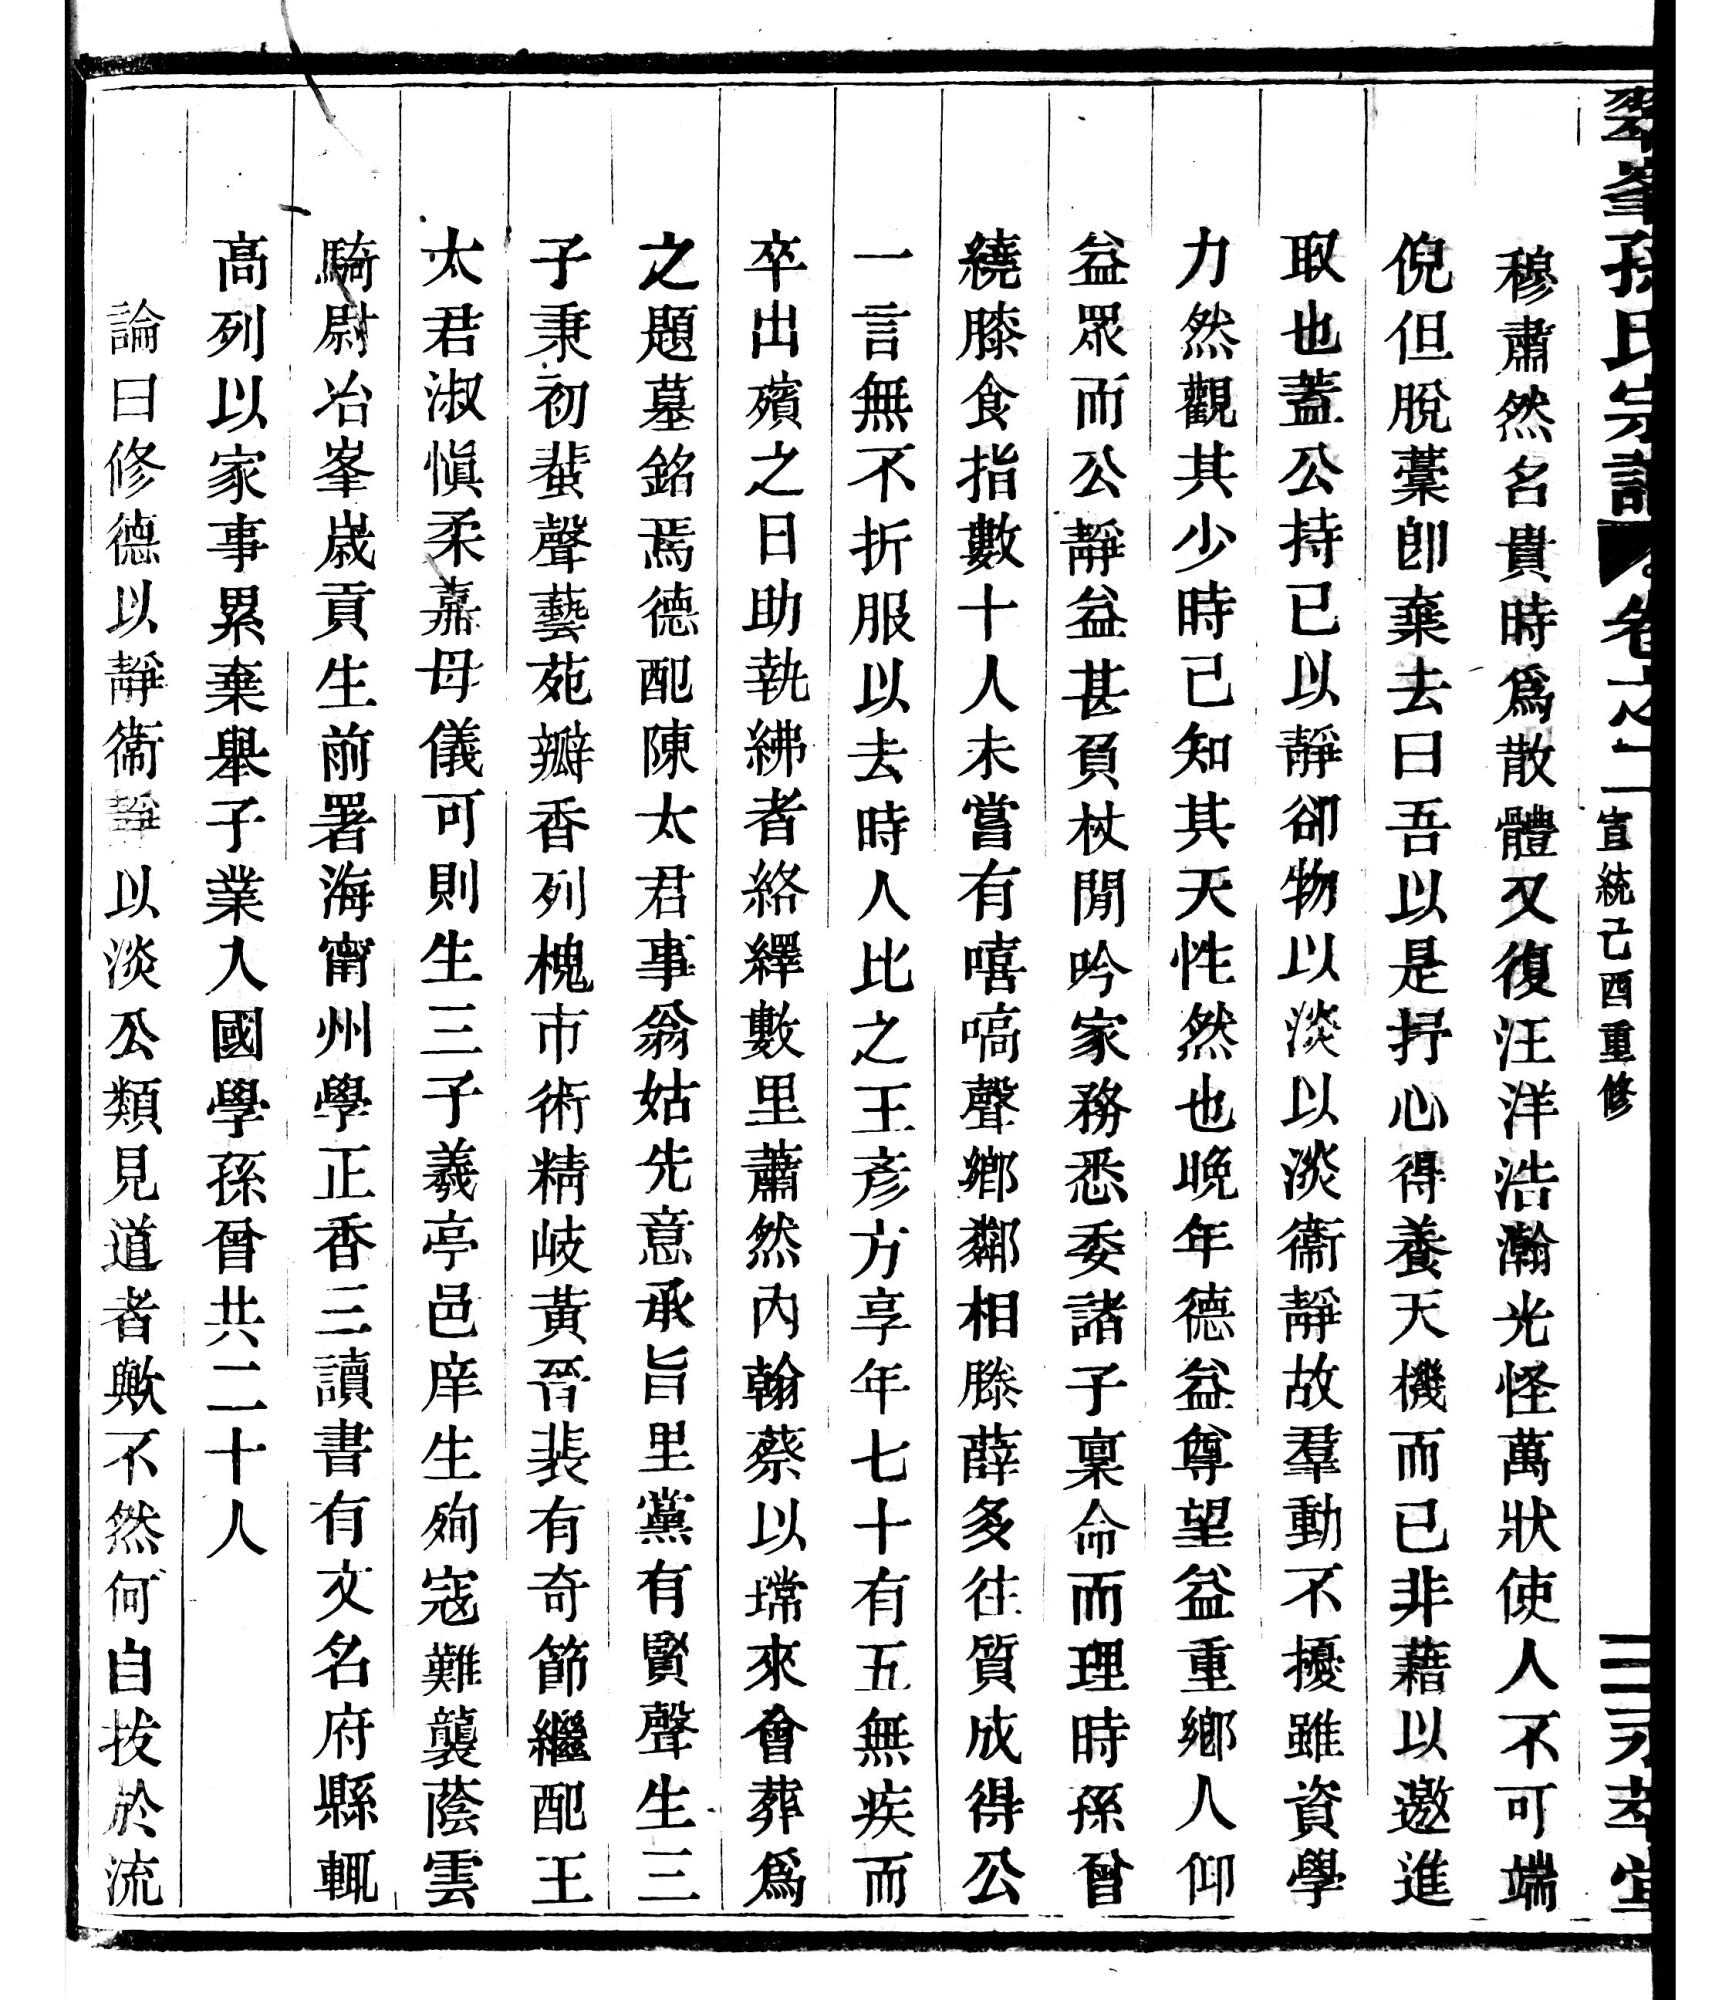 翠峯孫氏宗譜 卷之二 宣統己酉重修 三 永孝堂
穆肅然名貴時爲散體又復汪洋浩瀚光怪萬狀使人不可端
倪但脫藳卽棄去曰吾以是抒心得養天機而已非藉以邀進
取也蓋公持己以靜卻物以淡以淡衞靜故羣動不擾雖資學
力然觀其少時已知其天性然也晚年德益尊望益重鄉人仰
益眾而公靜益甚負杖閒吟家務悉委諸子稟命而理時孫曾
繞膝食指數十人未嘗有嘻嗃聲鄉鄰相滕薛多往質成得公
一言無不折服以去時人比之王彥方享年七十有五無疾而
卒出殯之日助執紼者絡繹數里蕭然內翰蔡以瑺來會葬爲
之題墓銘焉德配陳太君事翁姑先意承旨里黨有賢聲生三
子秉初蜚聲藝苑瓣香列槐市術精岐黃晉裴有奇節繼配王
太君淑愼柔嘉母儀可則生三子羲亭邑庠生殉寇難襲蔭雲
騎尉冶峯歲貢生前署海甯州學正香三讀書有文名府縣輒
高列以家事累棄舉子業入國學孫曾共二十人
論曰修德以靜衞靜以淡公類見道者歟不然何自拔於流